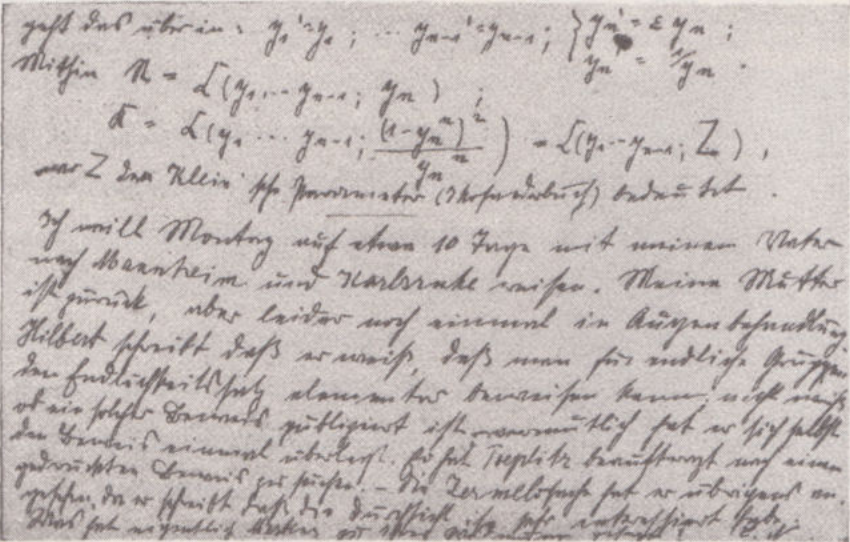 geht das über in: y₁' = y₁; ... yₙ₋₁' = yₙ₋₁; } yₙ' = ε yₙ;
yₙ' = 1/yₙ.
Mithin R = L(y₁...yₙ₋₁; yₙ);
K = L(y₁...yₙ₋₁; (1-yₙⁿ)²/yₙⁿ) = L(y₁...yₙ₋₁; Z),
wo Z den Klein'sche Parameter (Ikosaederbuch) bedeutet.
Ich will Montag auf etwa 10 Tage mit meinem Vater
nach Mannheim und Karlsruhe reisen. Meine Mutter
ist zurück, aber leider noch einmal in Augenbehandlung.
Hilbert schreibt daß er weiß, daß man für endliche Gruppen
den Endlichkeitssatz elementar beweisen kann; nicht weiß
ob ein solcher Beweis publiziert ist, vermutlich hat er sich selbst
den Beweis einmal überlegt. Er hat Toeplitz beauftragt nach einem
gedruckten Beweis zu suchen. – Die Zermelosache hat er übrigens an-
gesehen, da er schreibt daß die Durchsicht ihn sehr interessiert habe.
Was hat eigentlich